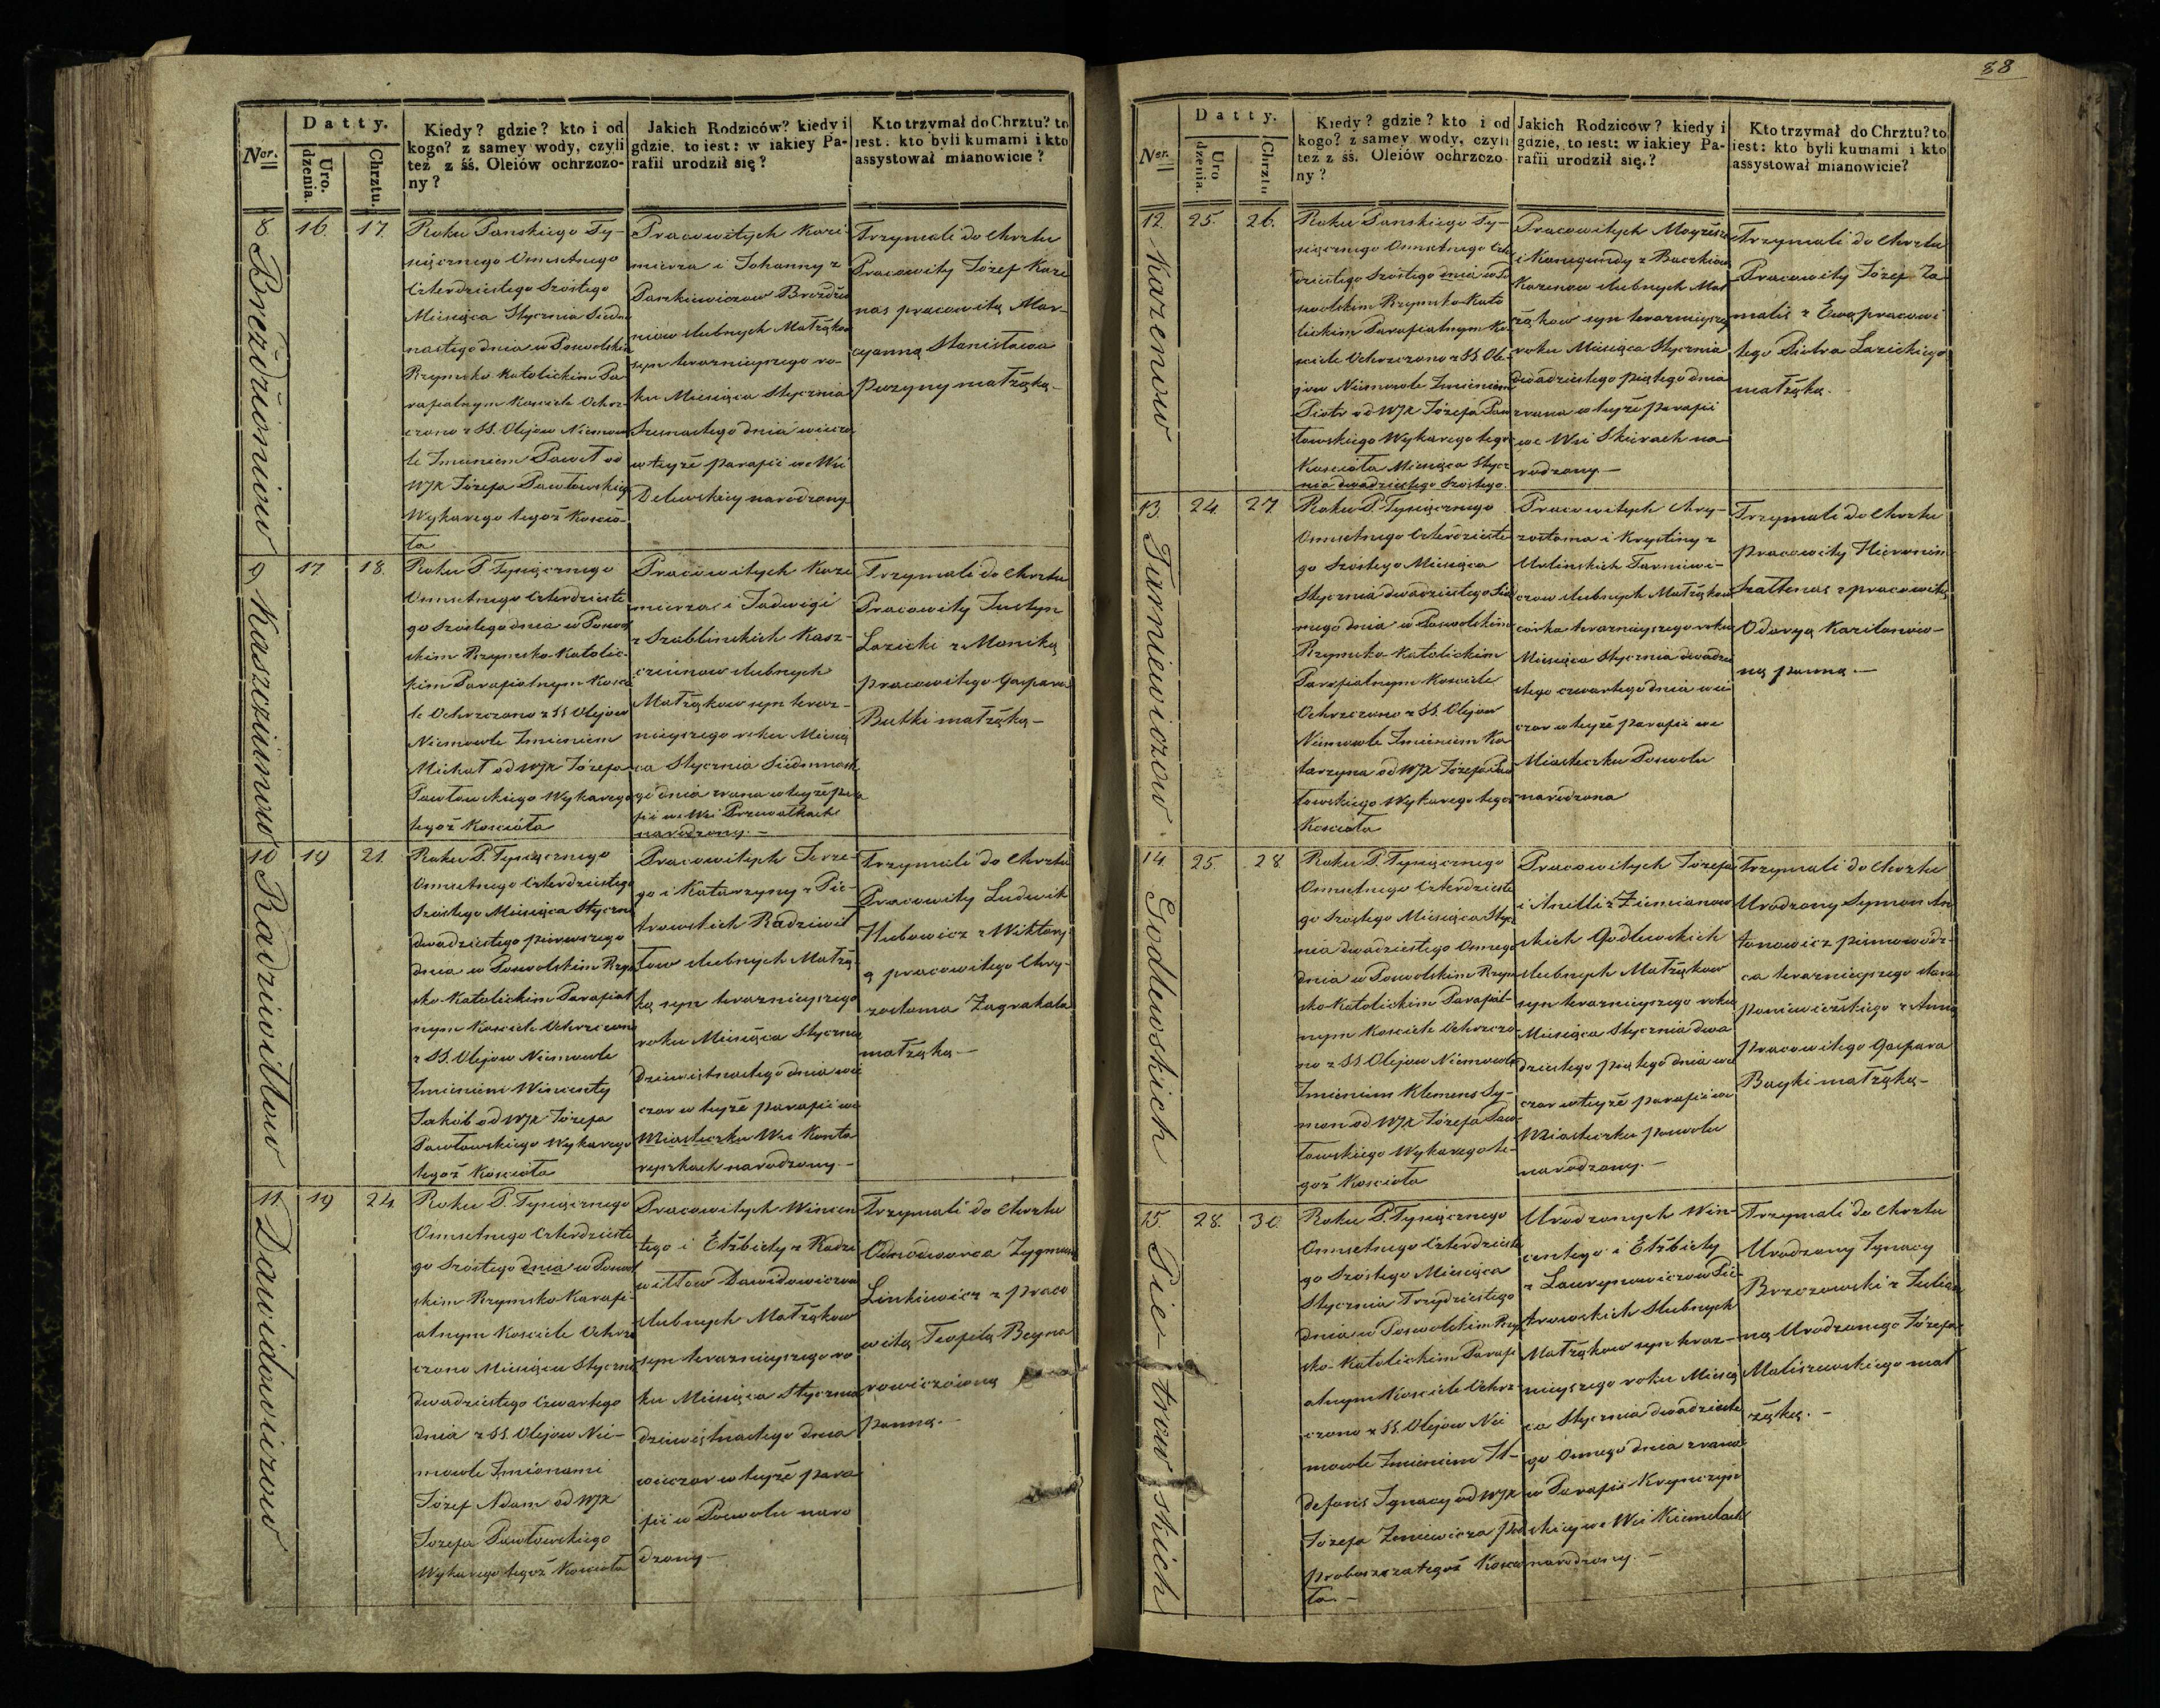 Ner.
Datty.
Uro-
dzenia.
Chrztu.
Kiedy? gdzie? kto i od
kogo? z samey wody, czyli
też z śś. Oleiów ochrzczo-
ny?
Jakich Rodziców? kiedy i
gdzie, to iest: w iakiey Pa-
rafii urodził się?
Kto trzymał do Chrztu? to
iest: kto byli kumami i kto
assystował mianowicie?
8
Brezdzioniow
16.
17.
Roku Panskiego Ty-
siącznego Osmsetnego
Czterdziestego Szostego
Miesiąca Stycznia Siedm
nastego dnia w Poswolskim
Rzymsko Katolickim Pa-
rafialnym Kosciele Ochrz-
czono z SS. Olejow Niemow
le Imieniem Paweł od
WJX Józefa Pawłowskiego
Wykarego tegoż Koscio-
ła
Pracowitych Kazi
mierza i Johanny z
Paszkiewiczow Brezdzio
niow slubnych Małżąkow
syn terazniejszego ro-
ku Miesiąca Stycznia
Szesnastego dnia wieczor
w teyże parafii we Wsi
narodzony
Trzymali do Chrztu
Pracowity Józef Kaze
nas pracowitą Mar-
cyanną Stanisława
Puzyny małżąką.
9
Kaszcziunow
17
18.
Roku P. Tysiącznego
Osmsetnego Czterdzieste
go Szostego dnia w Poswol
skim Rzymsko-Katolic-
kim Parafialnym Koscie
le Ochrzczono z SS Olejow
Niemowle Imieniem
Michał od WJX Józefa
Pawłowskiego Wykarego
tegoż Koscióła
Pracowitych Kazi
mierza i Jadwigi
z Szablinskich Kasz-
cziunow slubnych
Małżąkow syn teraz-
nieyszego roku Miesią
ca Stycznia Siedmnaste
go dnia zrana w teyże para
fii we Wsi
narodzony. -
Trzymali do Chrztu
Pracowity Justyn
Lazicki z Moniką
pracowitego Gaspara
Butki małżąką -
10
Radziwiłłow
19
21.
Roku P. Tysiącznego
Osmsetnego Czterdziestego
Szostego Miesiąca Stycznia
dwadziestego pierwszego
dnia w Poswolskim Rzym
sko-Katolickim Parafial
nym Kosciele Ochrzczono
z SS. Olejow Niemowle
Imieniem Wincenty
Jakób od WJX Józefa
Pawłowskiego Wykarego
tegoż Kosciola
Pracowitych Jerze-
go i Katarzyny z Pie-
trowskich Radziwił
łow slubnych Małżą-
ką syn terazniejszego
roku Miesiąca Stycznia
Dziewiętnastego dnia wie
czor w teyże parafii we
Miasteczku Wsi
narodzony. -
Trzymali do Chrztu
Pracowity Ludwik
Hubowicz z Wiktory
ą pracowitego Chry-
zostoma Zagrakala
małżąką -
11
Dawidowiczow
19
24.
Roku P. Tysiącznego
Osmsetnego Czterdzieste
go Szostego dnia w Poswol
skim Rzymsko-Karafi-
alnym Kosciele Ochrz
czono Miesiąca Stycznia
dwadziestego Czwartego
dnia z SS. Olejow Nie-
mowle Imionami
Józef Adam od WJX
Jozefa Pawłowskiego
Wykarego tegoż Kosciola
Pracowitych Wincen
tego i Elżbiety z Radzi
wiłłow Dawidowiczow
slubnych Małżąkow
syn teraznieyszego ro
ku Miesiąca Stycznia
dziewiętnastego dnia
wieczor w teyże para
fii w Poswolu naro
dzony -
Trzymali do Chrztu
Odnodworca Zygmunt
Linkiewicz z praco
witą Teofilą Beyna
rowiczówną
panną. -
88
Ner.
Datty.
Uro
dzenia.
Chrztu
Kiedy? gdzie? kto i od
kogo? z samey wody, czyli
też z śś. Oleiów ochrzczo-
ny?
Jakich Rodzicow? kiedy i
gdzie, to iest: w iakiey Pa-
rafii urodził się.?
Kto trzymał do Chrztu? to
iest: kto byli kumami i kto
assystował mianowicie?
12.
Kazenow
25.
26.
Roku Panskiego Ty-
siącznego Osmsetnego Czte
dziestego Szostego dnia w Po
swolskim Rzymsko-Kato
lickim Parafialnym Ko-
sciele Ochrzczono z SS Ole-
jow Niemowle Imieniem
Piotr od WJX Józefa Paw
łowskiego Wykarego tegoż
Kosciola Miesiąca Stycz
nia dwadziestego Szostego.
Pracowitych
i Konegundy z
Kazenow slubnych Mał
żąkow syn teraznieyszego
roku Miesiąca Stycznia
dwadziestego piątego dnia
zrana w teyże parafii
we Wsi Skierach na-
rodzony -
Trzymali do Chrztu
Pracowity Józef Za-
malis z Ewą pracowi
tego Piotra Lazickiego
małżąką.
13.
Tarniewiczow
24.
27.
Roku P. Tysiącznego
Osmsetnego Czterdzieste
go Szostego Miesiąca
Stycznia dwadziestego Siod
mego dnia w Poswolskim
Rzymsko-Katolickim
Parafialnym Kosciele
Ochrzczono z SS. Olejow
Niemowle Imieniem Ka
tarzyna od WJX Józefa Paw
łowskiego Wykarego tegoż
Kosciola
Pracowitych Chry-
zostoma i Krystiny z
Urlinskich Tarniewi-
czow slubnych Małżąkow
córka teraznieyszego roku
Miesiąca Stycznia dwadzie
stego czwartego dnia wie
czor w teyże parafii we
Miasteczku Poswolu
narodzona
Trzymali do Chrztu
pracowity Hieronim
Szaltenas z pracowitą
Odaryą Kazilonów-
ną panną -
14.
Godlewskich
25.
28
Roku P. Tysiącznego
Osmsetnego Czterdzieste
go Szostego Miesiąca Stycz
nia dwadziestego Osmego
dnia w Poswolskim Rzym
sko-Katolickim Parafial-
nym Kosciele Ochrzczo-
no z SS Olejow Niemowle
Imieniem Klemens Sy-
mon od WJX Józefa Paw-
łowskiego Wykarego te-
goż Kosciola
Pracowitych Józefa
i Anelli z Ziemianow
skich Godlewskich
slubnych Małżąkow
syn teraznieyszego roku
Miesiąca Stycznia dwa
dziestego piątego dnia wie
czor w teyże parafii we
Miasteczku poswolu
narodzony. -
Trzymali do Chrztu
Urodzony Symon An
tonowicz pismowodz-
ca teraznieyszego stana
poniewiezskiego z Anną
pracowitego Gaspara
Bayki małżąką -
15.
Pietrowskich
28.
30.
Roku P. Tysiącznego
Osmsetnego Czterdzieste
go Szostego Miesiąca
Stycznia Trzydziestego
dnia w Poswolskim Rzym
sko-Katolickim Parafi
alnym Kosciele Ochrz-
czono z SS. Olejow Nie
mowle Imieniem Il-
defons Ignacy od WJX
Józefa
proboszcza tegoż Koscio
ła -
Urodzonych Win-
centego i Elżbiety
z Lawrynowiczow Pie-
trowskich Slubnych
Małżąkow syn teraz-
nieyszego roku Miesią
ca Stycznia dwadzieste
go Osmego dnia zrana
w Parafii Krynczyn
skiey we Wsi Kiemelach
narodzony. -
Trzymali do Chrztu
Urodzony Ignacy
Brzozowski z Julian
ną Urodzonego Józefa
Maliszewskiego mał
żąką. -